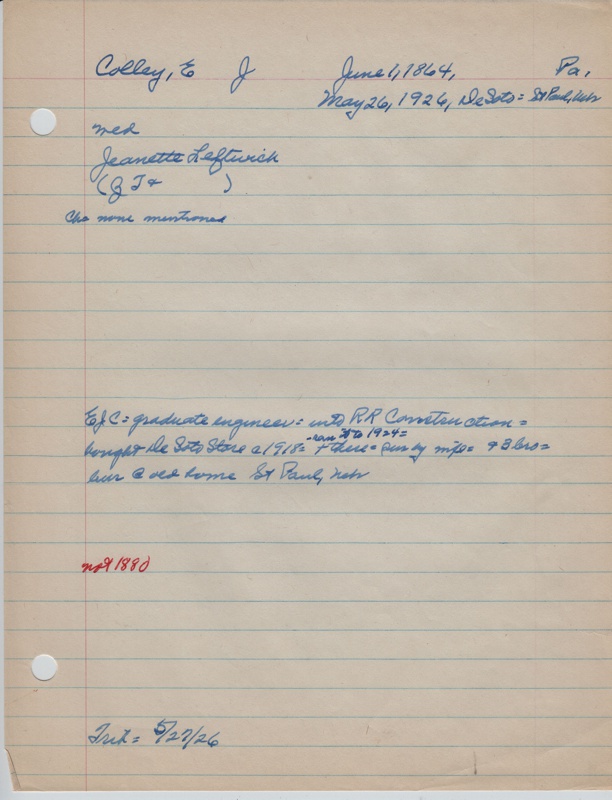 Colley, E J June 1, 1864, Pa,
May 26, 1926, De Soto = St Paul, Neb
med
Jeanette Leftwich
(G T + )
Chs none mentioned
EJC = graduate engineer = into RR Construction =
- ran it to 1924 =
bought De Soto Store c 1918 = + there = sur by wife = + 3 bro =
bur @ old home St Paul, Neb
not 1880
Trib = 5/27/26